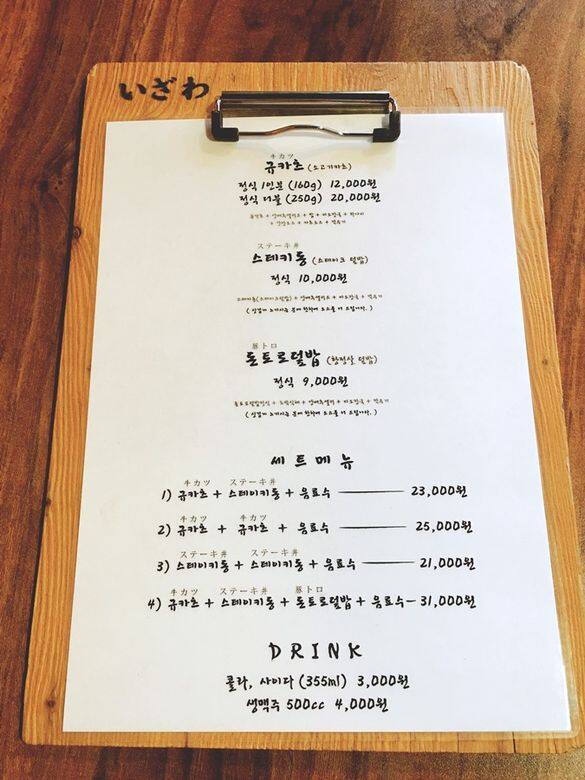 いざわ
규카츠 (소고기카츠)
정식 1인분 (160g) 12,000원
정식 더블 (250g) 20,000원
ステーキ丼
스테키동 (스테이크 덮밥)
정식 10,000원
豚トロ
돈토로덮밥 (항정살 덮밥)
정식 9,000원
세트메뉴
ステーキ丼
1) 규카츠 + 스테이키동 + 음료수 23,000원
2) 규카츠 + 규카츠 + 음료수 25,000원
ステーキ丼 ステーキ丼
3) 스테이키동 + 스테이키동 + 음료수 21,000원
ステーキ丼 豚トロ
4) 규카츠 + 스테이키동 + 돈토로덮밥 + 음료수 31,000원
DRINK
콜라, 사이다 (355ml) 3,000원
생맥주 500cc 4,000원